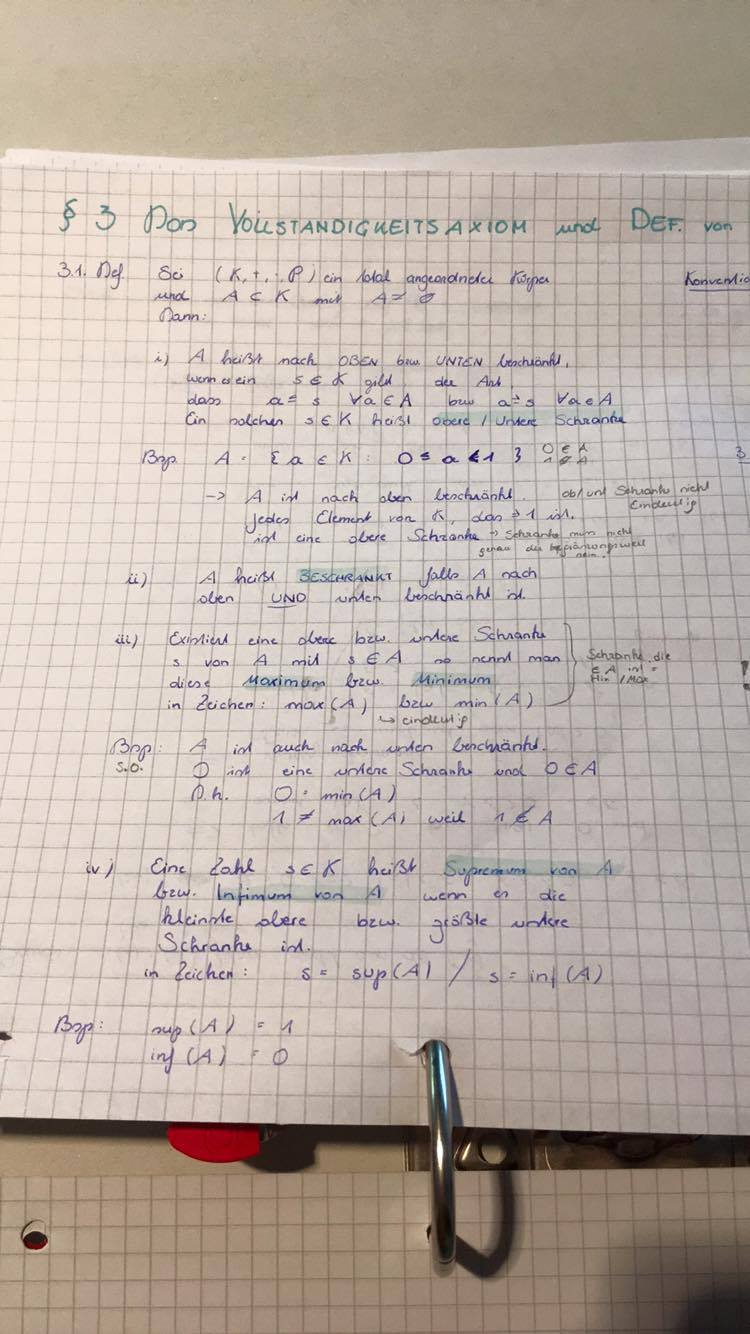 § 3 Das VOLLSTÄNDIGKEITSAXIOM und DEF. von
3.1. Def. Sei (K, +, ·, P) ein total angeordneter Körper
und A ⊂ K mit A ≠ ∅
Dann:
Konventio
i) A heißt nach OBEN bzw. UNTEN beschränkt,
wenn es ein s ∈ K gibt der Art
dass a ≤ s ∀a ∈ A bzw a ≥ s ∀a ∈ A
Ein solches s ∈ K heißt obere / untere Schranke
Bsp. A = { a ∈ K : 0 ≤ a < 1 } 0 ∈ A
1 ∉ A
-> A ist nach oben beschränkt. ob/unt Schranke nicht
Eindeutig
jedes Element von K, das ≥ 1 ist.
ist eine obere Schranke → Schranke muss nicht
genau der Begränzungswert
sein.
ii) A heißt BESCHRÄNKT falls A nach
oben UND unten beschränkt ist.
iii) Existiert eine obere bzw. untere Schranke
s von A mit s ∈ A so nennt man
diese Maximum bzw. Minimum
in Zeichen: max(A) bzw min(A)
↳ eindeutig
Schranke, die
∈ A ist =
Min / Max
Bsp: A ist auch nach unten beschränkt.
s.o. 0 ist eine untere Schranke und 0 ∈ A
D.h. 0 = min(A)
1 ≠ max(A) weil 1 ∉ A
iv) Eine Zahl s ∈ K heißt Supremum von A
bzw. Infimum von A wenn es die
kleinste obere bzw. größte untere
Schranke ist.
in Zeichen: s = sup(A) / s = inf(A)
Bsp: sup(A) = 1
inf(A) = 0